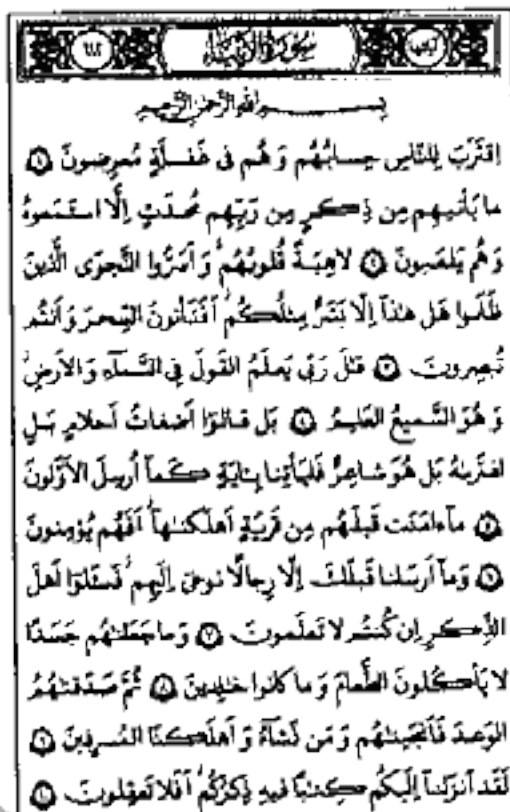 سورة الأنبياء
بسم الله الرحمن الرحيم
اقتَرَبَ لِلنّاسِ حِسابُهُم وَ هُم فی غَفلَةٍ مُعرِضونَ ﴿١﴾
ما يَأتيهِم مِن ذِكرٍ مِن رَبِّهِم مُحدَثٍ إِلَّا استَمَعوهُ
وَ هُم يَلعَبونَ ﴿٢﴾ لاهِيَةً قُلوبُهُم ۗ وَ أَسَرُّوا النَّجوَى الَّذينَ
ظَلَموا هَل هٰذا إِلّا بَشَرٌ مِثلُكُم ۖ أَفَتَأتونَ السِّحرَ وَ أَنتُم
تُبصِرونَ ﴿٣﴾ قالَ رَبّی يَعلَمُ القَولَ فِی السَّماءِ وَ الأَرضِ ۖ
وَ هُوَ السَّميعُ العَليمُ ﴿٤﴾ بَل قالوا أَضغاثُ أَحلامٍ بَلِ
افتَراهُ بَل هُوَ شاعِرٌ فَليَأتِنا بِـٔايَةٍ كَما أُرسِلَ الأَوَّلونَ
﴿٥﴾ ما ءامَنَت قَبلَهُم مِن قَريَةٍ أَهلَكناها ۖ أَفَهُم يُؤمِنونَ
﴿٦﴾ وَما أَرسَلنا قَبلَكَ إِلّا رِجالًا نوحی إِلَيهِم ۖ فَسـَٔلوا أَهلَ
الذِّكرِ إِن كُنتُم لا تَعلَمونَ ﴿٧﴾ وَما جَعَلناهُم جَسَدًا
لا يَأكُلونَ الطَّعامَ وَ ما كانوا خالِدينَ ﴿٨﴾ ثُمَّ صَدَقناهُمُ
الوَعدَ فَأَنجَيناهُم وَ مَن نَشاءُ وَ أَهلَكنَا المُسرِفينَ ﴿٩﴾
لَقَد أَنزَلنا إِلَيكُم كِتابًا فيهِ ذِكرُكُم ۖ أَفَلا تَعقِلونَ ﴿١٠﴾